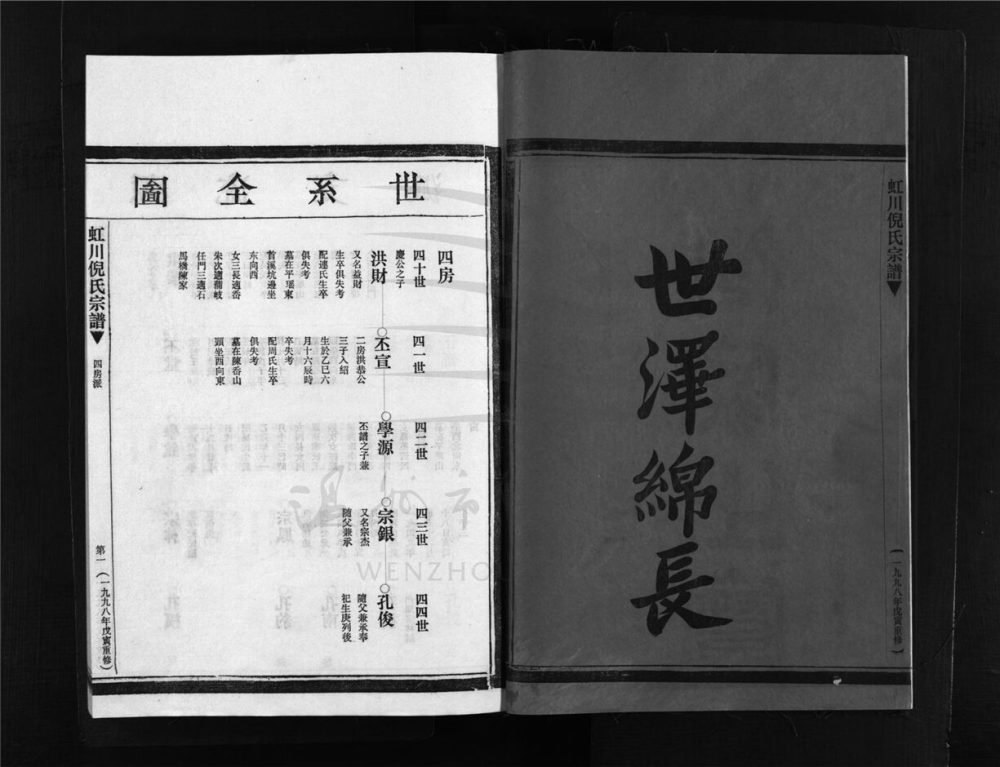 虹川倪氏宗譜
(一九九八年戊寅重修)
世澤綿長
世系全圖
四房
四十世
慶公之子
洪財
又名益財
生卒俱失考
配連氏生卒
俱失考
墓在平瑤東
首溪坑邊坐
东向西
女三長適香
朱次適蒲岐
任門三適石
馬橋陳家
四一世
丕宣
二房洪恭公
三子入紹
生於乙巳六
月十六辰時
卒失考
配周氏生卒
俱失考
墓在陳岙山
頭坐西向東
四二世
學源
丕譜之子兼
四三世
宗銀
又名宗杰
隨父兼承
四四世
孔俊
隨父兼承奉
祀生庚列後
虹川倪氏宗譜
四房派
第一
(一九九八年戊寅重修)
WENZHO